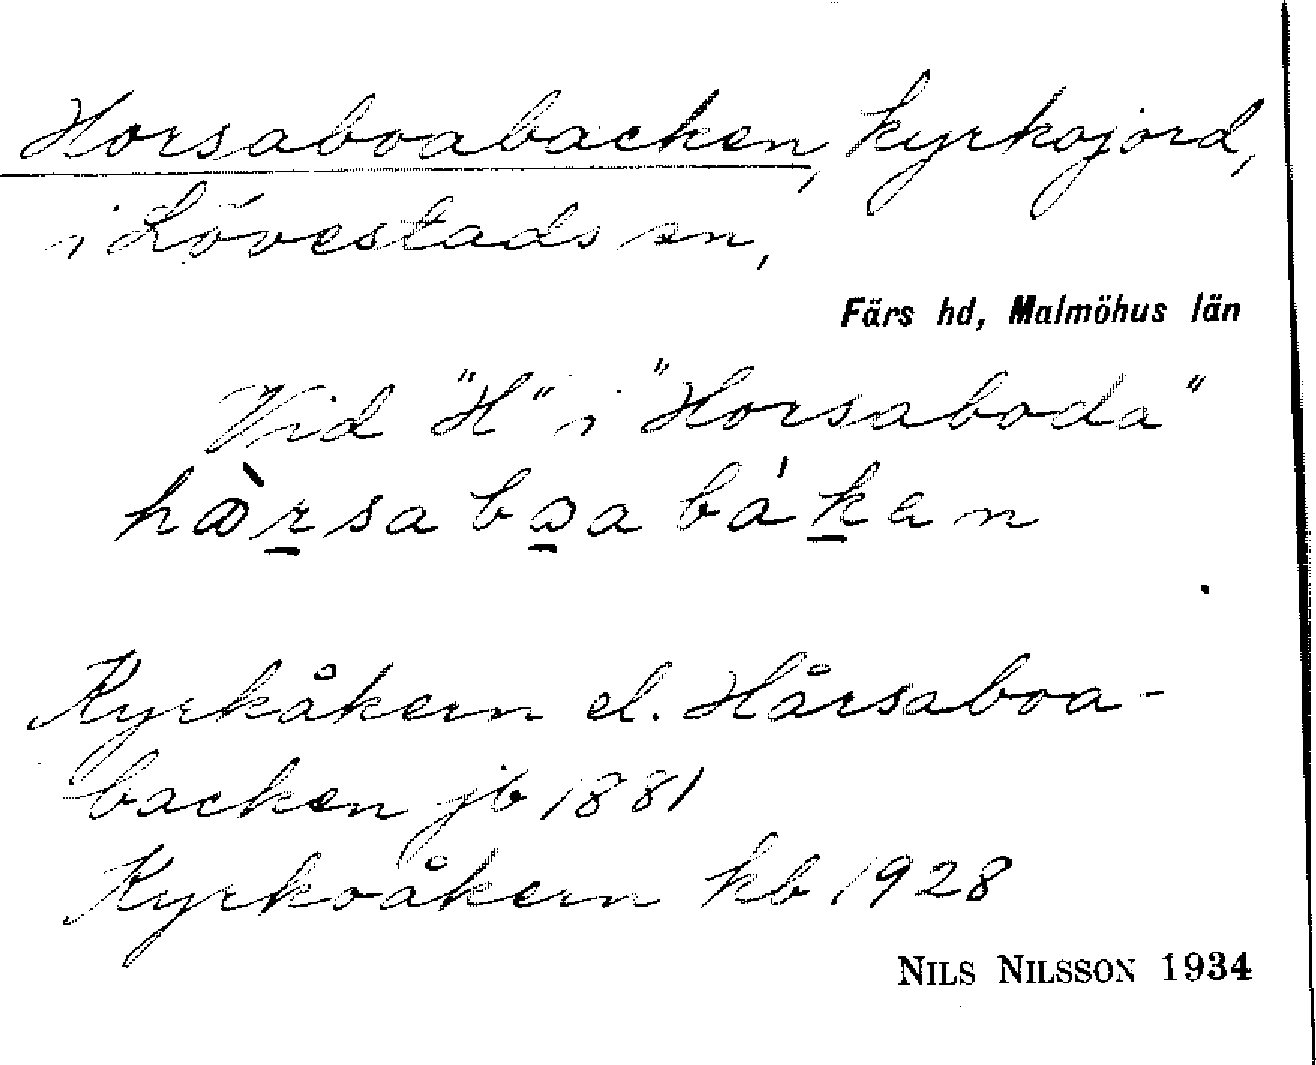 Horsaboabacken, kyrkojord,
i Lövestads sn,
Färs hd, Malmöhus län
Vid "H" i "Horsaboda"
Kyrkåkern el. Hårsaboa-
backen jb 1881
Kyrkoåkern kb 1928
NILS NILSSON 1934